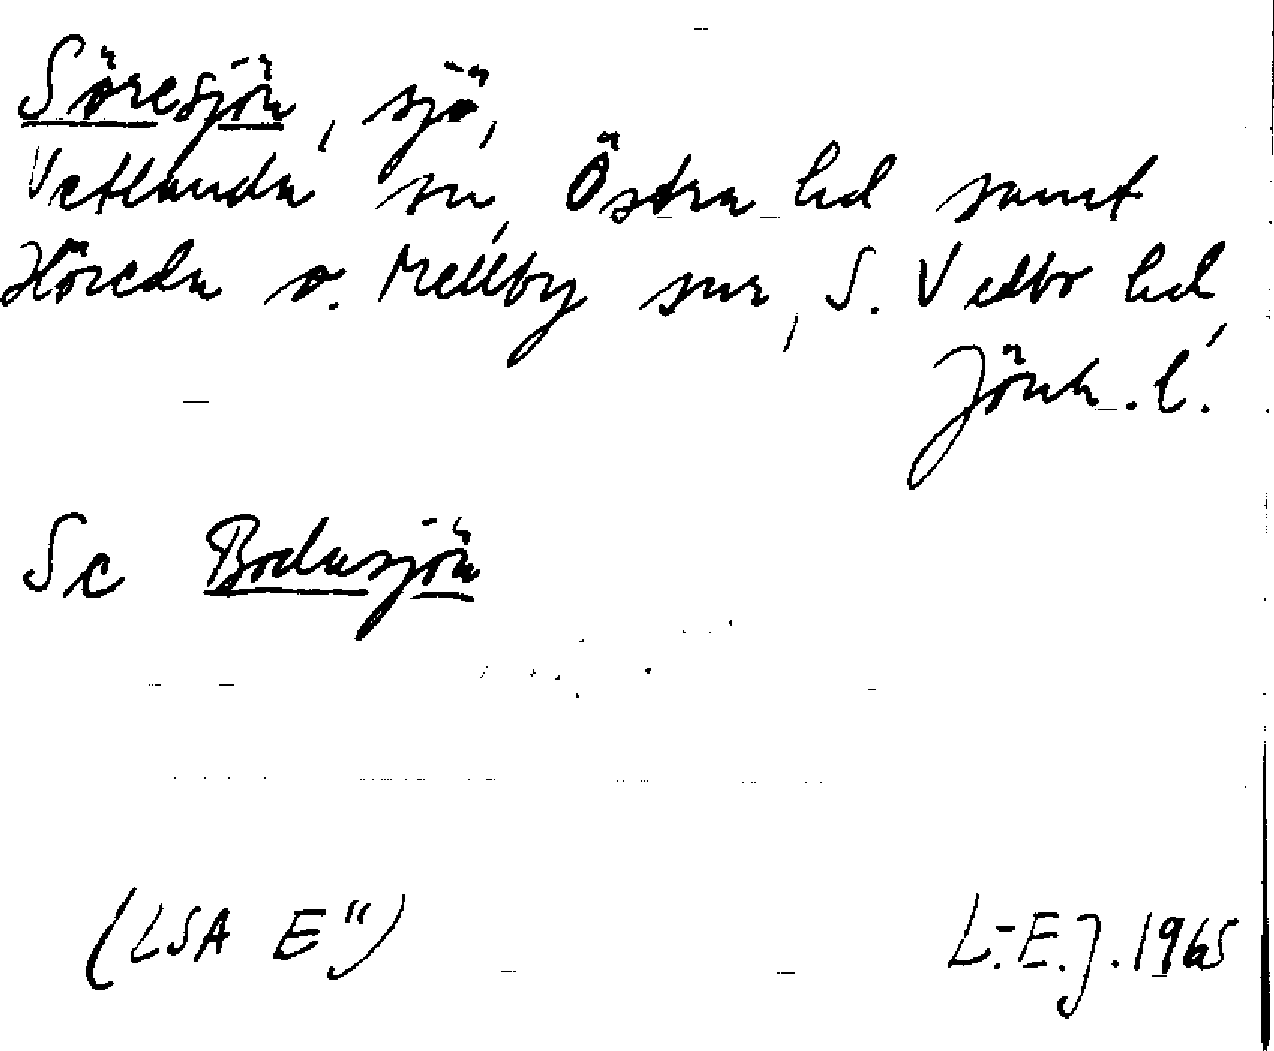 Söresjön, sjö,
Vetlanda sn, Östra hd samt
Höreda o. Mellby snr, S. Vedbo hd,
Jönk. l.
Se Bodasjön
(LSA E")
L.-E.J. 1965